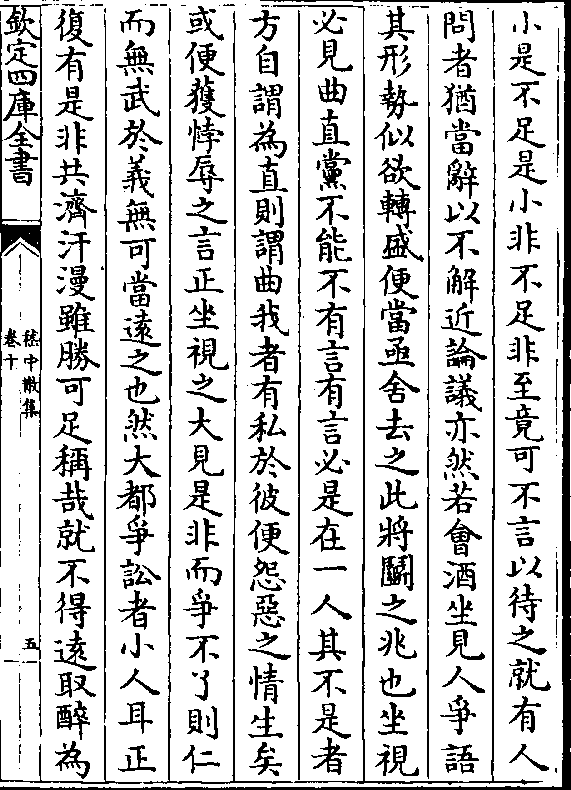 小是不足是小非不足非至竟可不言以待之就有人
問者猶當辭以不解近論議亦然若會酒坐見人爭語
其形勢似欲轉盛便當亟舍去之此將鬬之兆也坐視
必見曲直黨不能不有言有言必是在一人其不是者
方自謂為直則謂曲我者有私於彼便怨惡之情生矣
或便獲悖辱之言正坐視之大見是非而爭不了則仁
而無武於義無可當逺之也然大都爭訟者小人耳正
復有是非共濟汗漫雖勝可足稱哉就不得逺取醉為
欽定四庫全書
嵇中散集
卷十
五